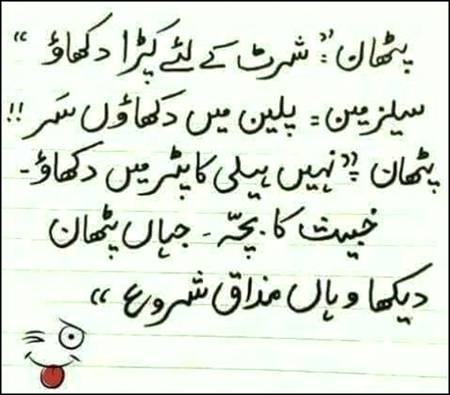 پٹھان :" شرٹ کے لئے کپڑا دکھاؤ "
سیلزمین = پلین میں دکھاؤں سَر !!
پٹھان :" نہیں ہیلی کاپٹر میں دکھاؤ -
خبیث کا بچّہ - جہاں پٹھان
دیکھا وہاں مذاق شروع "